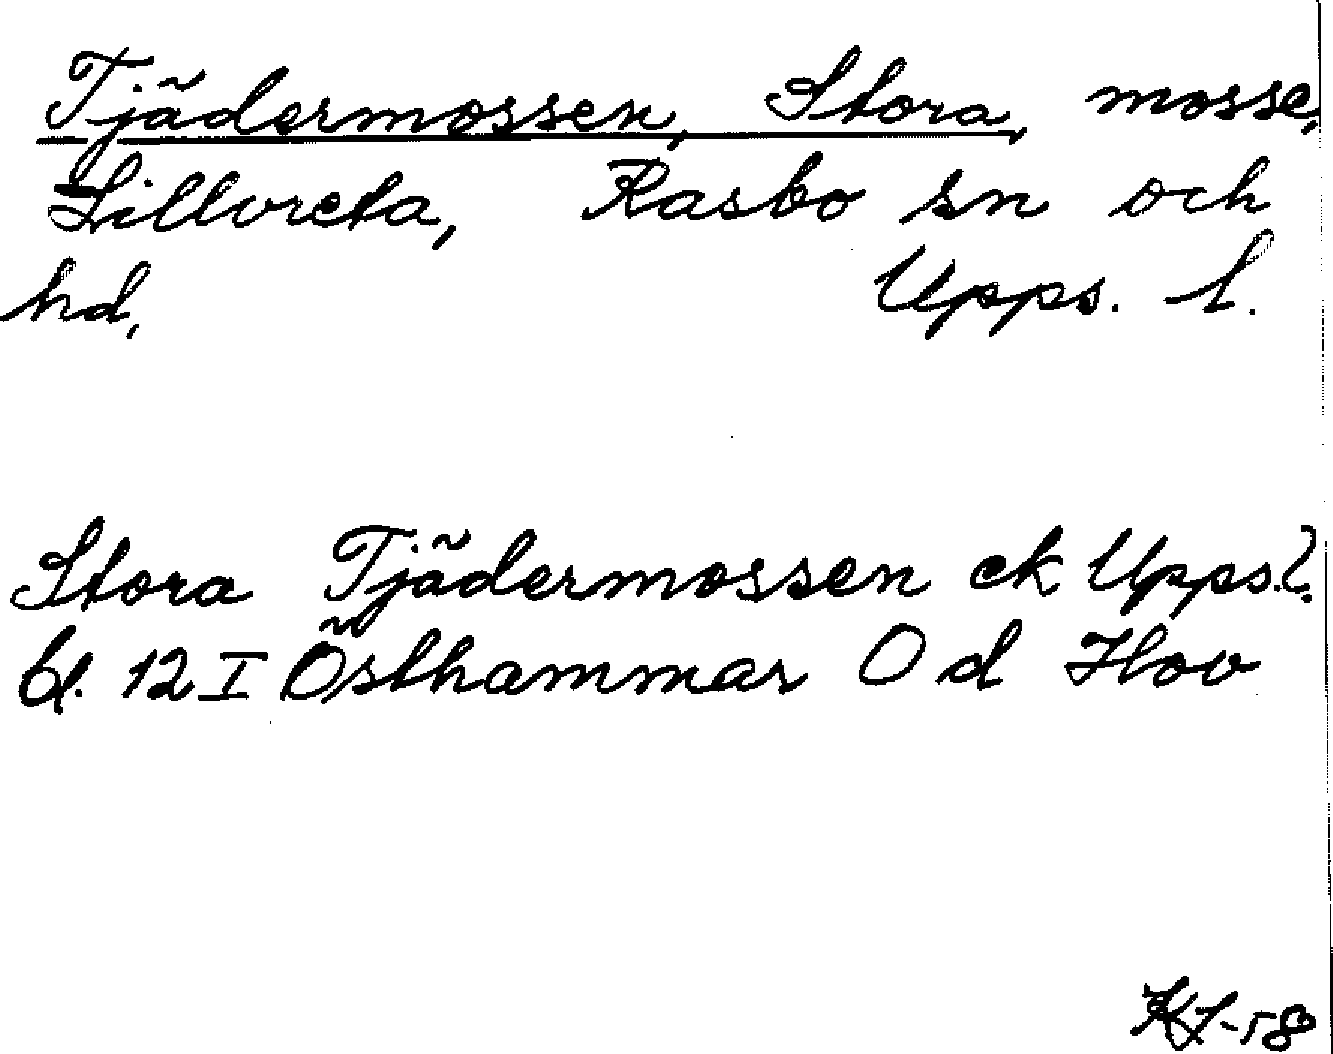 Tjädermossen, Stora, mosse,
Lillvreta, Rasbo sn och
hd, Upps. l.
Stora Tjädermossen ek Upps. l.
bl. 12 I Östhammar O d Hov
-58